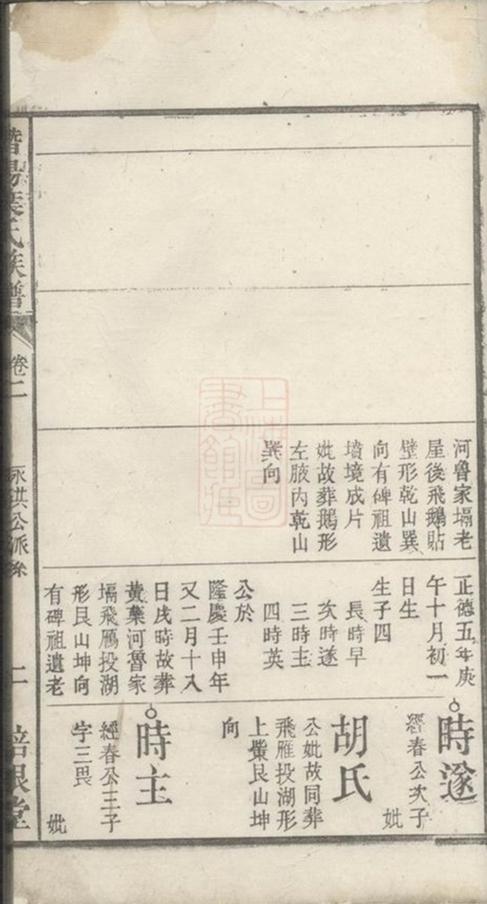 河魯家塌老
屋後飛鵝貼
壁形乾山巽
向有碑祖遺
墳境成片
妣故葬鵝形
左腋內乾山
巽向
正德五年庚
午十月初一
日生
生子四
長時早
次時遂
三時主
四時英
公於
隆慶壬申年
又二月十入
日戌時故葬
黄藥河魯家
塌飛鴈投湖
形艮山坤向
有碑祖遺老
時遂
經春公次子
妣
胡氏
公妣故同葬
飛雁投湖形
上塋艮山坤
向
時主
經春公三子
字三畏
妣
葉氏族譜
卷二
永洪公派系
二
培根堂